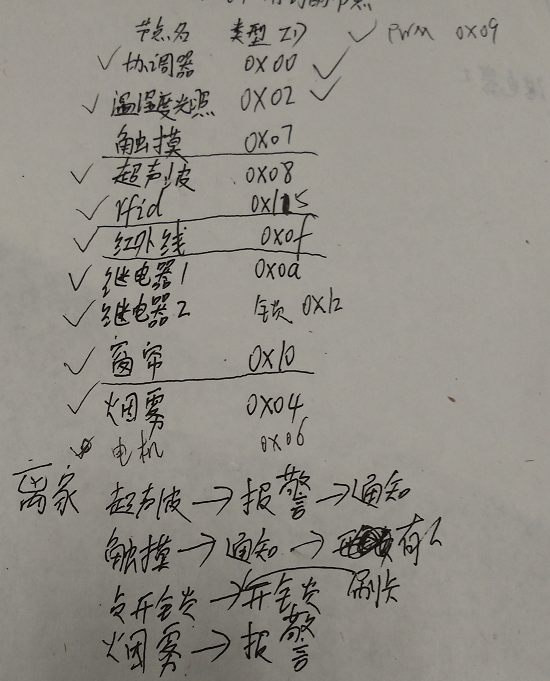 节点名 类型ID ✓ PWM 0x09
✓ 协调器 0x00 ✓
✓ 温湿度光照 0x02 ✓
触摸 0x07
✓ 超声波 0x08
✓ rfid
✓ 红外线 0x0f
✓ 继电器1 0x0a
✓ 继电器2 锁 0x12
✓ 窗帘 0x10
✓ 烟雾 0x04
电机 0x06
离家 超声波→报警→通知
触摸→通知→有人
开锁→开锁 刷卡
烟雾→报警